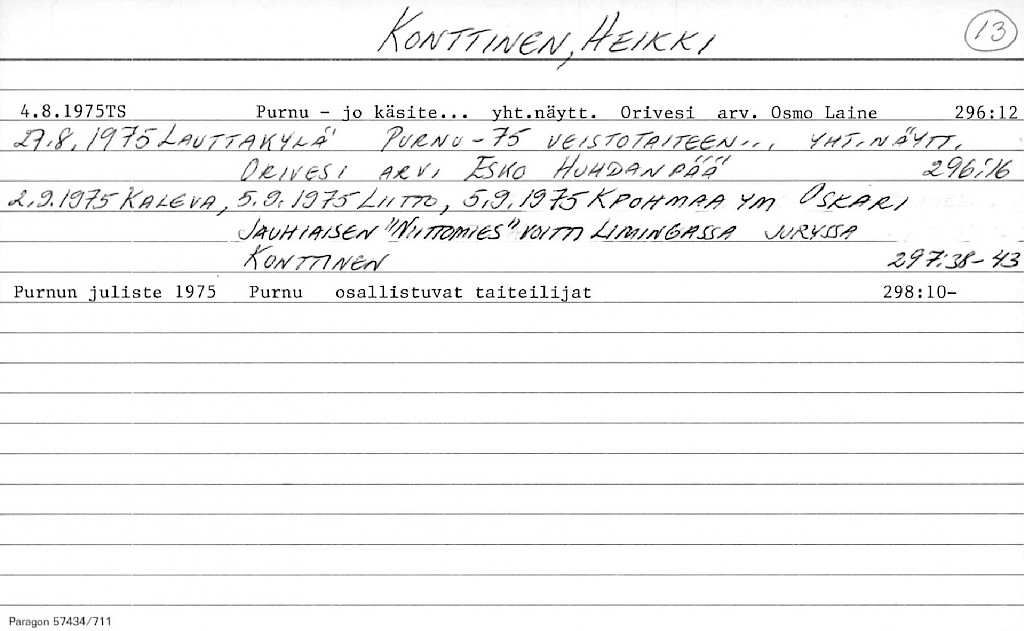 KONTTINEN, HEIKKI 13
4.8.1975TS Purnu - jo käsite... yht.näytt. Orivesi arv. Osmo Laine 296:12
27.8.1975 LAUTTAKYLÄ PURNU-75 VEISTOTAITEEN... YHT.NÄYTT.
ORIVESI ARV. ESKO HUHDANPÄÄ 296:16
2.9.1975 KALEVA, 5.9.1975 LIITTO, 5.9.1975 KPOHMAA YM OSKARI
JAUHIAISEN "NIITTOMIES" VOITTI LIMINGASSA JURYSSA
KONTTINEN 297:38-43
Purnun juliste 1975 Purnu osallistuvat taiteilijat 298:10-
Paragon 57434/711